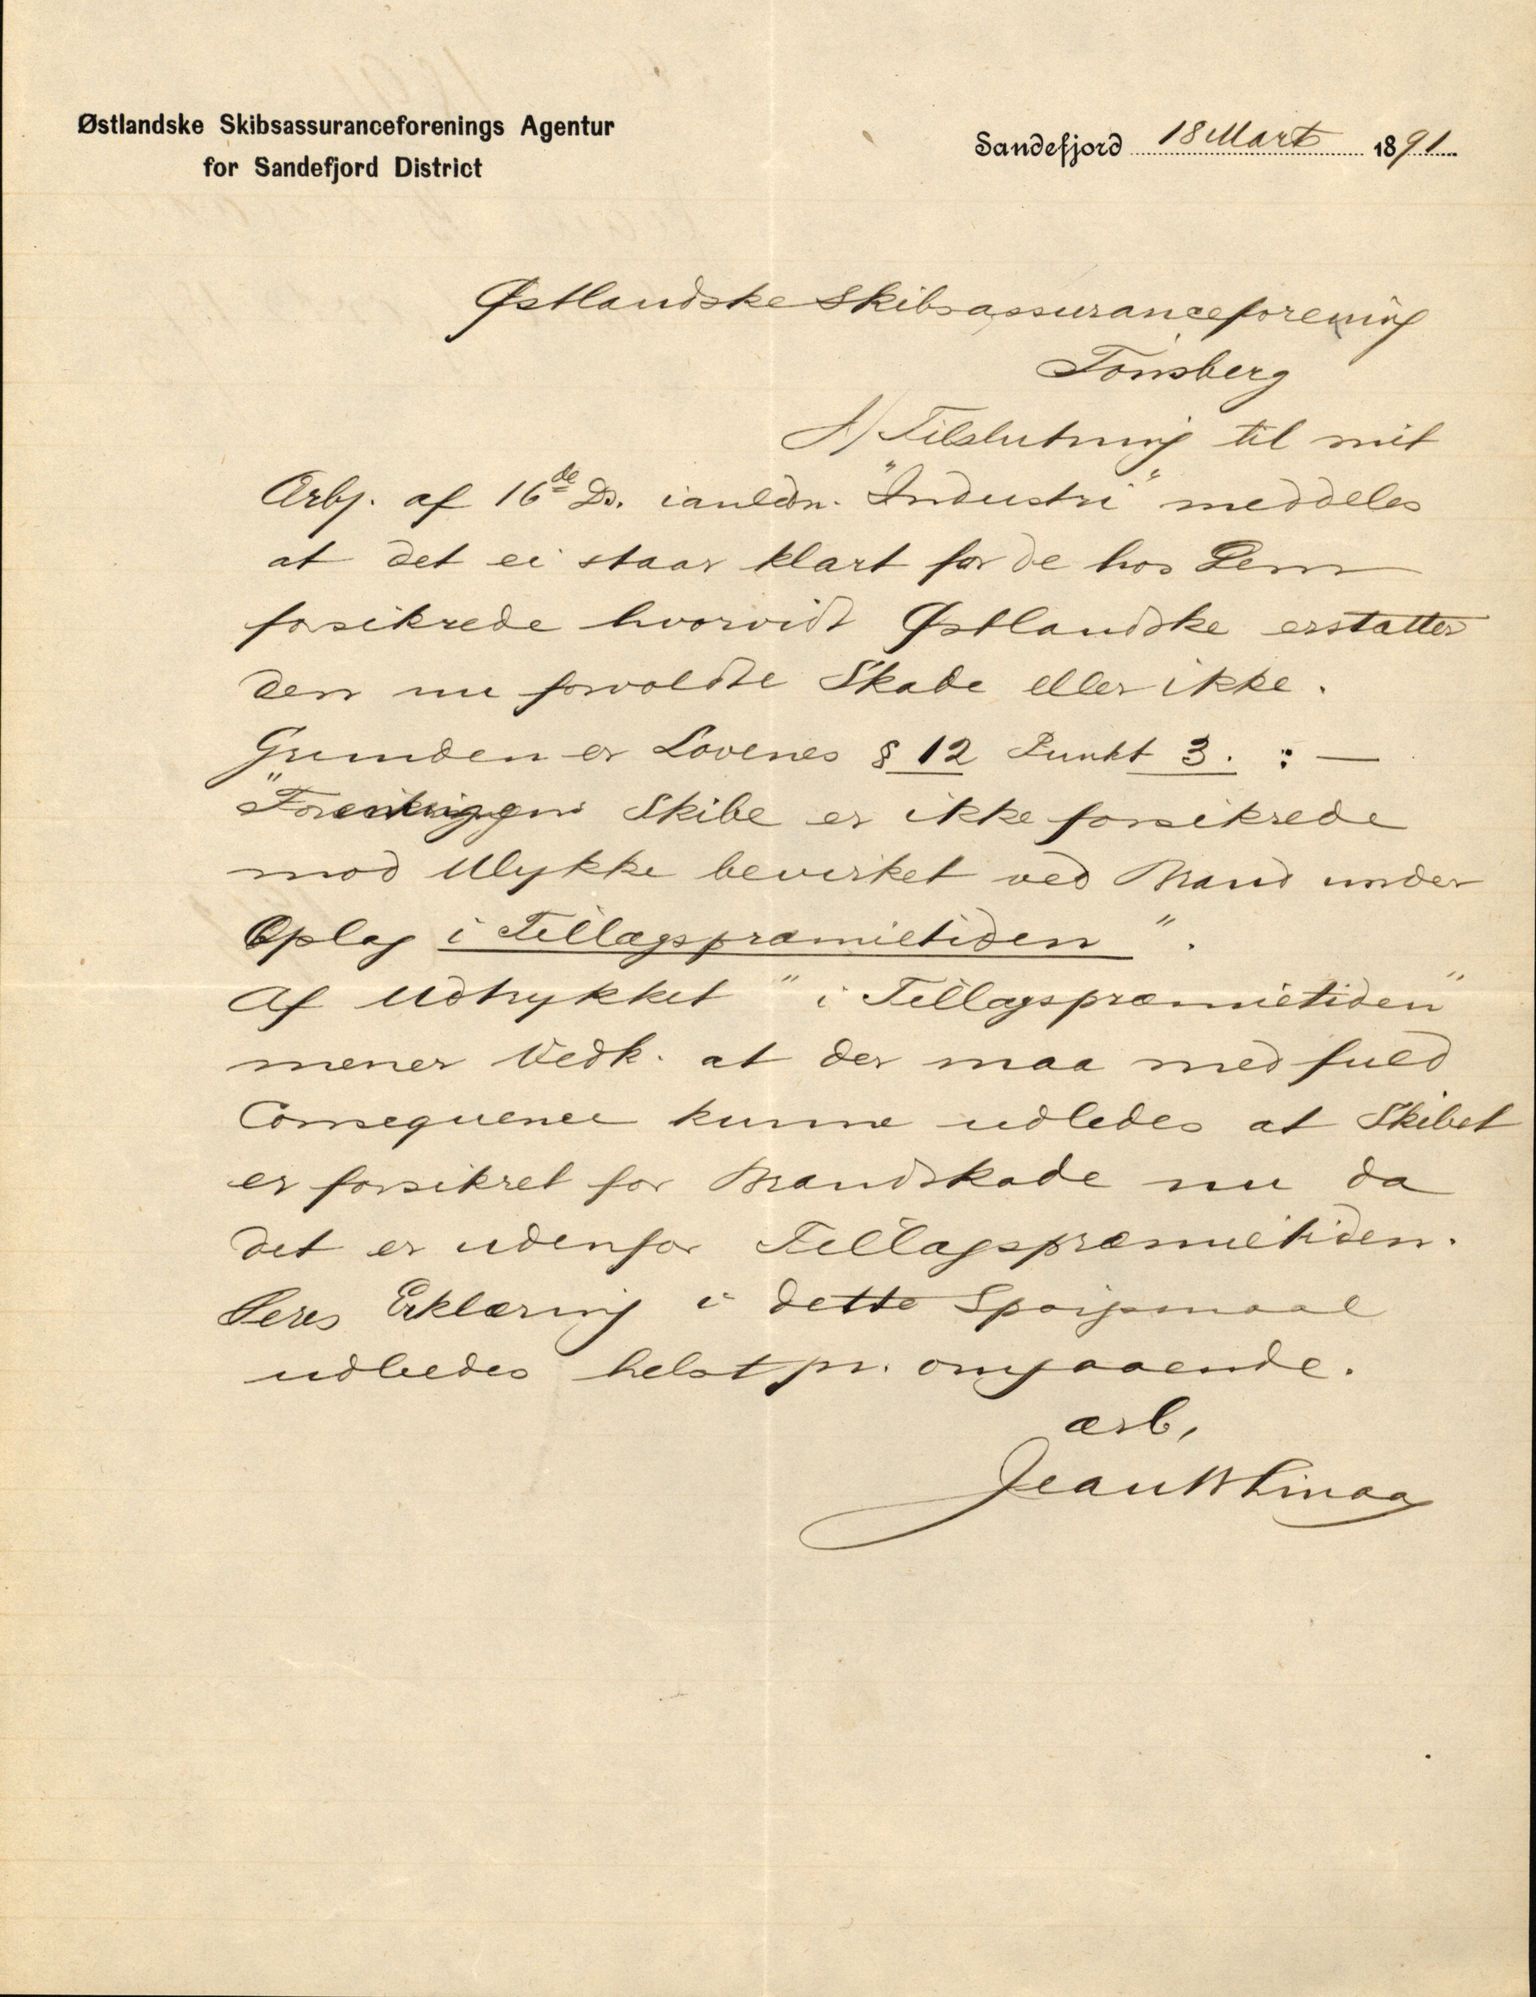 Østlandske Skibsassuranceforenings Agentur
for Sandefjord District
Sandefjord 18 Mart 1891
Østlandske Skibsassuranceforening
Tönsberg
I Tilslutning til mit
Ærbj. af 16de Ds. ianledn. "Industri" meddeles
at det ei staar klart for de hos Dem
forsikrede hvorvidt Østlandske erstatter
den nu forvoldte Skade eller ikke.
Grunden er Lovenes § 12 Punkt 3. : —
"Foreningens Skibe er ikke forsikrede
mod Ulykke bevirket ved Brand under
Oplag i Tillægspræmietiden".
Af Udtrykket "i Tillægspræmietiden"
mener Vedk. at der maa med fuld
Consequence kunne udledes at Skibet
er forsikret for Brandskade nu da
det er udenfor Tillægspræmietiden.
Deres Erklæring i dette Spörgsmaal
udbedes helst pr. omgaaende.
ærb,
Jean W Linaae